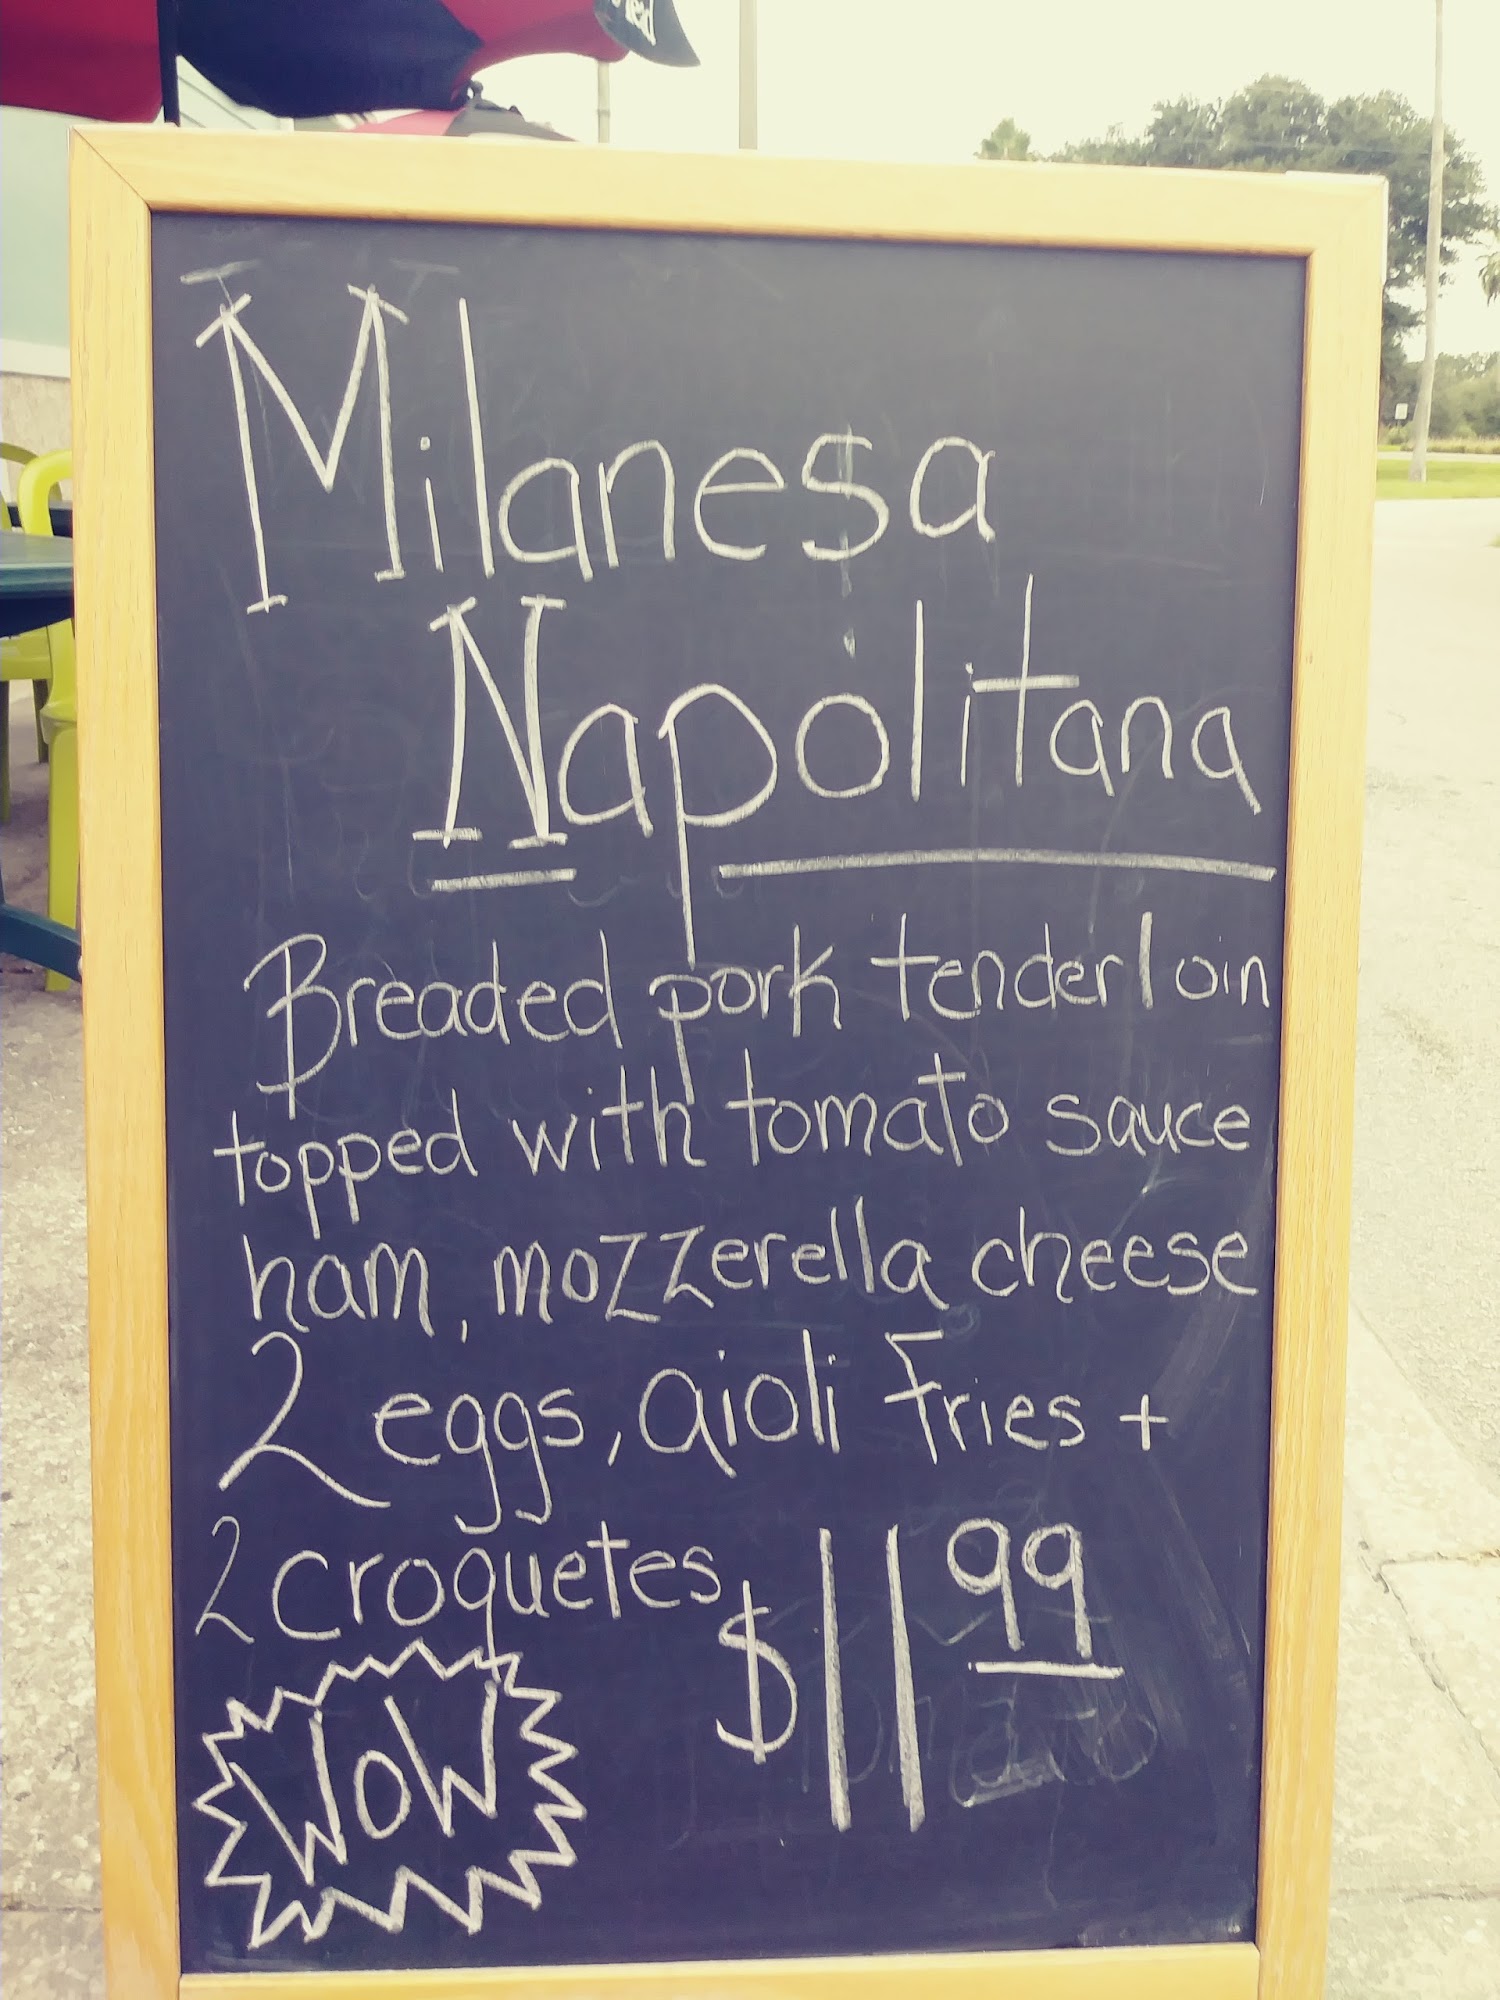 Milanesa
Napolitana
Breaded pork tenderloin
topped with tomato sauce
ham, mozzerella cheese
2 eggs, aioli Fries +
2 croquetes
$11 99
WOW